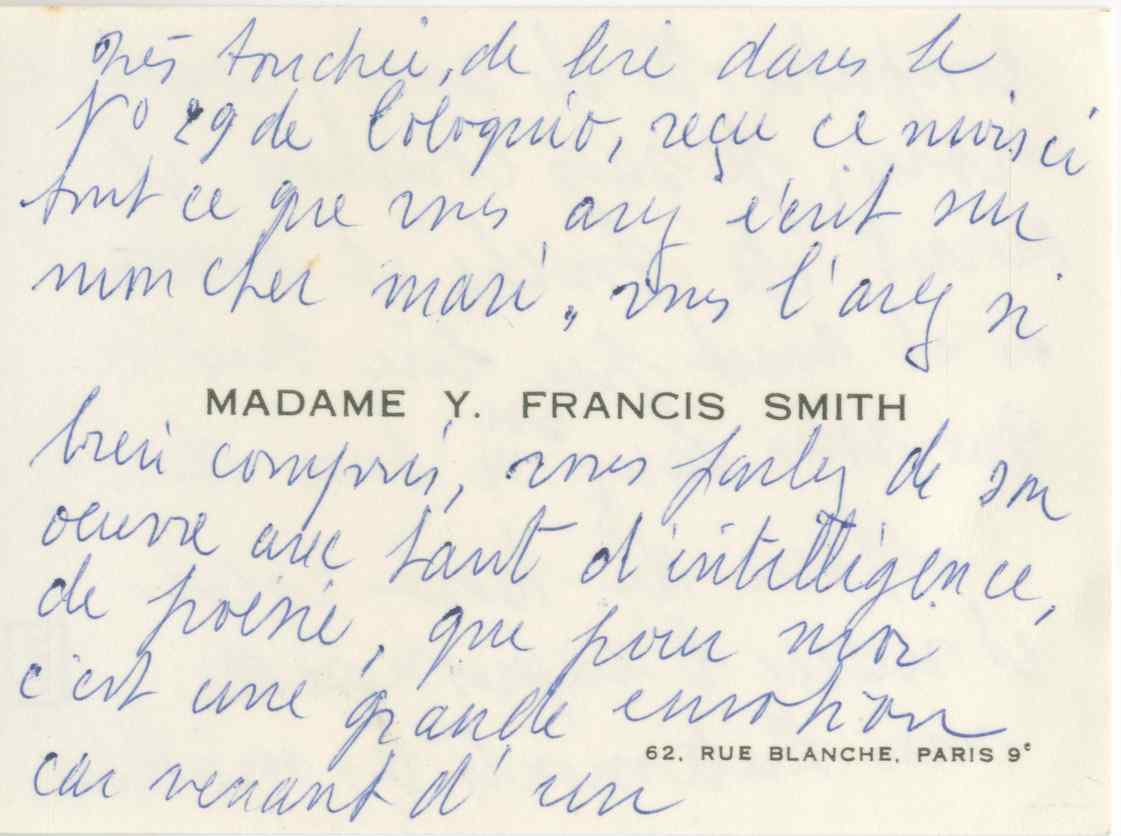 Très touchée, de lire dans le
No 29 de Coloquio, reçu ce mois ci
tout ce que vous avez écrit sur
mon cher mari, vous l'avez si
MADAME Y. FRANCIS SMITH
bien compris, vous parlez de son
oeuvre avec tant d'intelligence,
de poésie, que pour moi
c'est une grande emotion
62, RUE BLANCHE, PARIS 9e
car venant d'un